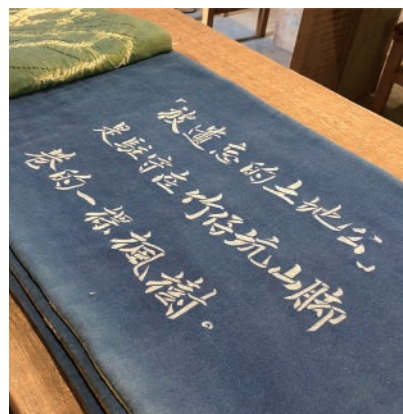 「被遺忘的土地公」
是駐守在竹仔坑山脚
巷的一棵楓樹。